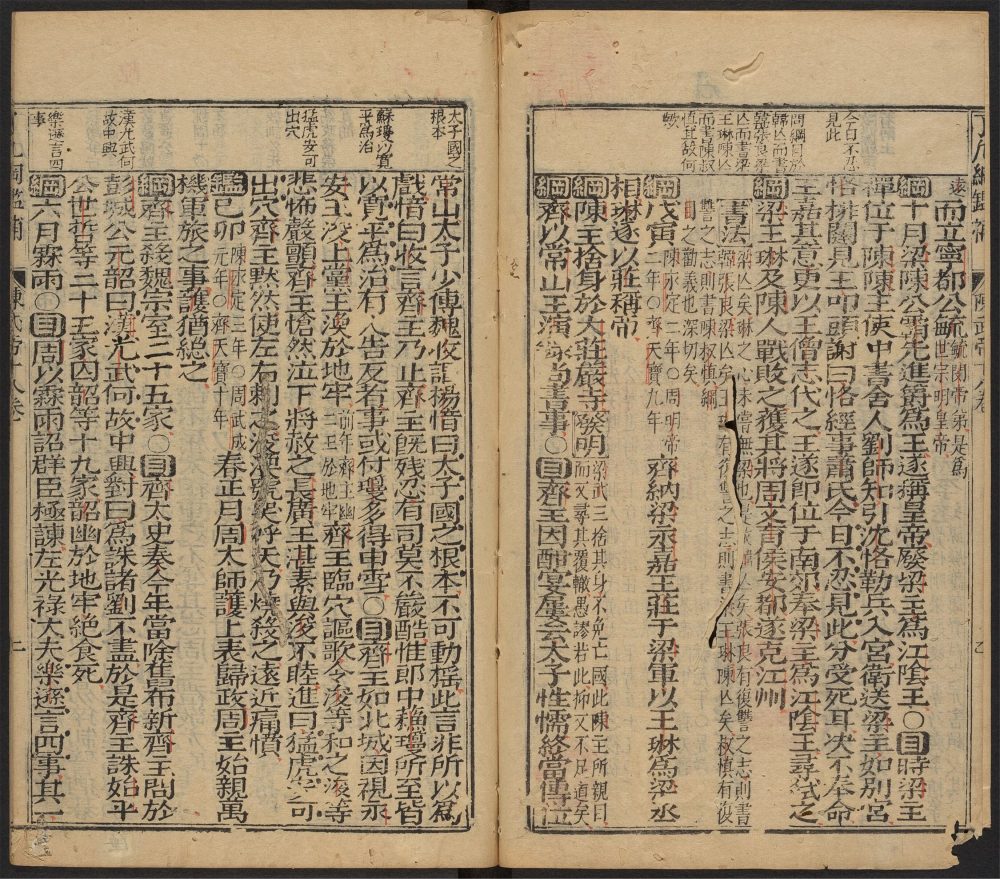 今日不忍
見此
問綱目於
韓亡而書
韓張良梁
亡而書梁
王琳陳亡
而書陳叔
慎其故何
歟
而立寧都公毓 毓閔帝弟是為
世宗明皇帝
綱十月梁陳公霸先進爵為王遂稱皇帝廢梁王為江陰王○目時梁王
禪位于陳陳主使中書舍人劉師知引沈恪勒兵入宮衛送梁主如別宮
恪排闥見王叩頭謝曰恪經事蕭氏今日不忍見此分受死耳决不奉命
王嘉其意更以王僧志代之王遂即位于南郊奉梁主為江陰王尋弒之
綱梁王琳及陳人戰敗之獲其將周文育侯安都遂克江州
書法 梁亡矣琳之心未嘗無梁也是
張良有復讐之志則書
韓張良梁亡矣王琳有復讐之志則書梁王琳陳亡矣叔慎有復
讐之志則書陳叔慎綱
目之勸義也深切矣
綱戊寅 陳永定二年○周明帝
二年○齊天寶九年 齊納梁永嘉王莊于梁軍以王琳為梁丞
相琳遂以莊稱帝
綱陳主捨身於大莊嚴寺 發明 梁武三捨其身不免亡國此陳王所親見
而又尋其覆轍愚謬若此抑又不足道矣
綱齊以常山王演錄尚書事○目齊王因酣宴屢云太子性懦終當傳位
太子國之
根本
蘇瓊以寬
平為治
猛虎安可
出穴
漢光武何
故中興
樂遜言四
事
常山太子少傅魏收謂楊愔曰太子國之根本不可動搖此言非所以為
戲愔曰收言齊王乃止齊王既殘忍有司莫不嚴酷惟郎中蘇瓊所至皆
以寬平為治有人告反者事或付瓊多得申雪○目齊王如北城因視永
安王浚上黨王渙於地牢 前年齊王幽
二王於地牢 齊王臨穴謳歌令浚等和之浚等
悲怖聲顫齊王愴然泣下將赦之長廣王湛素與浚不睦進曰猛虎安可
出穴齊王默然使左右刺之浚渙號哭呼天乃燒殺之遠近痛憤
鑑己卯 陳永定三年○周武成
元年○齊天寶十年 春正月周太師護上表歸政周王始親萬
機軍旅之事護猶總之
綱齊主殺魏宗室二十五家○目齊太史奏今年當除舊布新齊王問於
彭城公元韶曰漢光武何故中興對曰為誅諸劉不盡於是齊王誅始平
公世哲等二十五家囚韶等十九家韶幽於地牢絕食死
綱六月霖雨○目周以霖雨詔群臣極諫左光祿大夫樂遜言四事其一